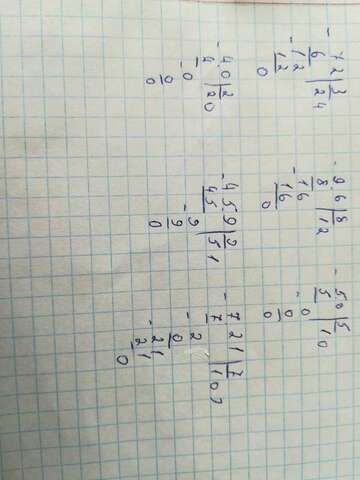 -72|3
6|24
-12
12
0
-96|8
8|12
-16
16
0
-50|5
5|10
-0
0
0
-40|2
4|20
-0
0
0
-459|9
45|51
-9
9
0
-721|7
7|103
-2
0
-21
21
0